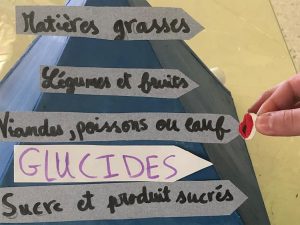 Matières grasses
Légumes et fruits
Viandes, poissons ou œuf
GLUCIDES
Sucre et produit sucrés